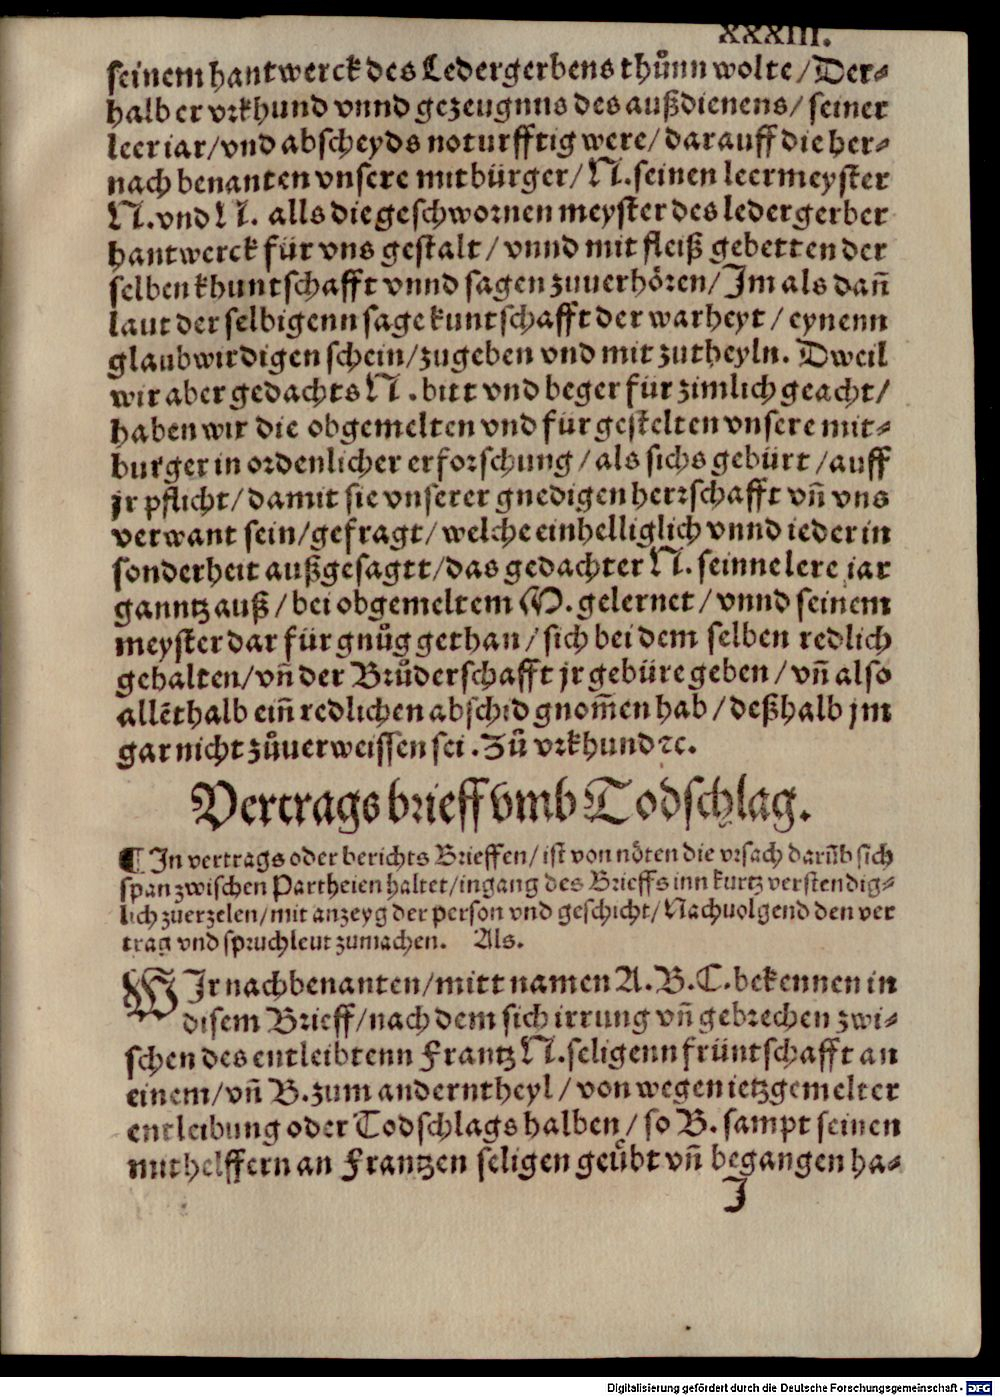 XXXIII.
seinem hantwerck des Ledergerbens thůnn wolte/Der-
halb er vrkhund vnnd gezeugnus des außdienens/ seiner
leer iar/vnd abscheyds noturfftig were/darauff die her-
nach benanten vnsere mitbürger/N. seinen leermeyster
N. vnd N. alls die geschwornen meyster des ledergerber
hantwerck für vns gestalt/vnnd mit fleiß gebetten der
selben khuntschafft vnnd sagen zuuerhören/Im als dañ
laut der selbigenn sage kuntschafft der warheyt/eynenn
glaubwirdigen schein/zugeben vnd mit zutheyln. Dweil
wir aber gedachts N. bitt vnd beger für zimlich geacht/
haben wir die obgemelten vnd für gestelten vnsere mit-
burger in ordenlicher erforschung/als sichs gebürt/auff
jr pflicht/damit sie vnserer gnedigen herrschafft vñ vns
verwant sein/gefragt/welche einhelliglich vnnd ieder in
sonderheit außgesagtt/das gedachter N. seinne lere jar
ganntz auß/bei obgemeltem M. gelernet/vnnd seinem
meyster dar für gnůg gethan/sich bei dem selben redlich
gehalten/vñ der Brůderschafft jr gebüre geben/vñ also
allēthalb eiñ redlichen abschid gnom̃en hab/deßhalb jm
gar nicht zůuerweissen sei. Zů vrkhund ꝛc.
Vertrags brieff vmb Todschlag.
¶ In vertrags oder berichts Brieffen/ist von nöten die vrsach darũb sich
span zwischen Partheien haltet/ingang des Brieffs inn kurtz verstendig-
lich zuerzelen/mit anzeyg der person vnd geschicht/Nachuolgend den ver
trag vnd spruchleut zumachen. Als.
WIr nachbenanten/mitt namen A. B. C. bekennen in
disem Brieff/nach dem sich irrung vñ gebrechen zwi-
schen des entleibtenn Frantz N. seligenn früntschafft an
einem/vñ B. zum anderntheyl/von wegen ietzgemelter
entleibung oder Todschlags halben/so B. sampt seinen
mithelffern an Frantzen seligen geübt vñ begangen ha-
I
Digitalisierung gefördert durch die Deutsche Forschungsgemeinschaft - DFG